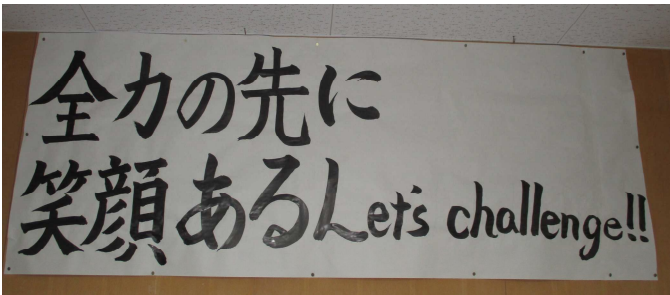 全力の先に
笑顔あるLet's challenge!!